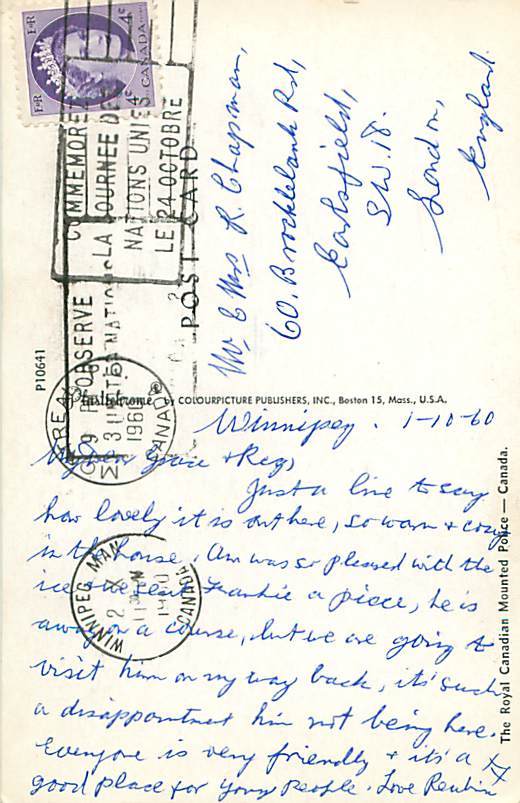 E II R
CANADA
4c
E II R
COMMEMOREZ
LA JOURNEE DES
NATIONS UNIES
LE 24 OCTOBRE
OBSERVE
UNITED NATIONS
POST CARD
Mr & Mrs R. Chapman,
60. Brocklebank Rd,
Earlsfield,
S.W.18.
London,
England.
P10641
Plastichrome by COLOURPICTURE PUBLISHERS, INC., Boston 15, Mass., U.S.A.
MONTREAL
1960
CANADA
Winnipeg. 1-10-60
My Dear Grace & Reg,
Just a line to say
how lovely it is out here, so warm & cosy
in the house. Ann was so pleased with the
ice & we sent Frankie a piece, he is
away on a course, but we are going to
visit him on my way back, it's such
a disappointment him not being here.
Everyone is very friendly & it's a
good place for young people. Love Reubin
WINNIPEG MAN
2 X
1960
CANADA
The Royal Canadian Mounted Police — Canada.